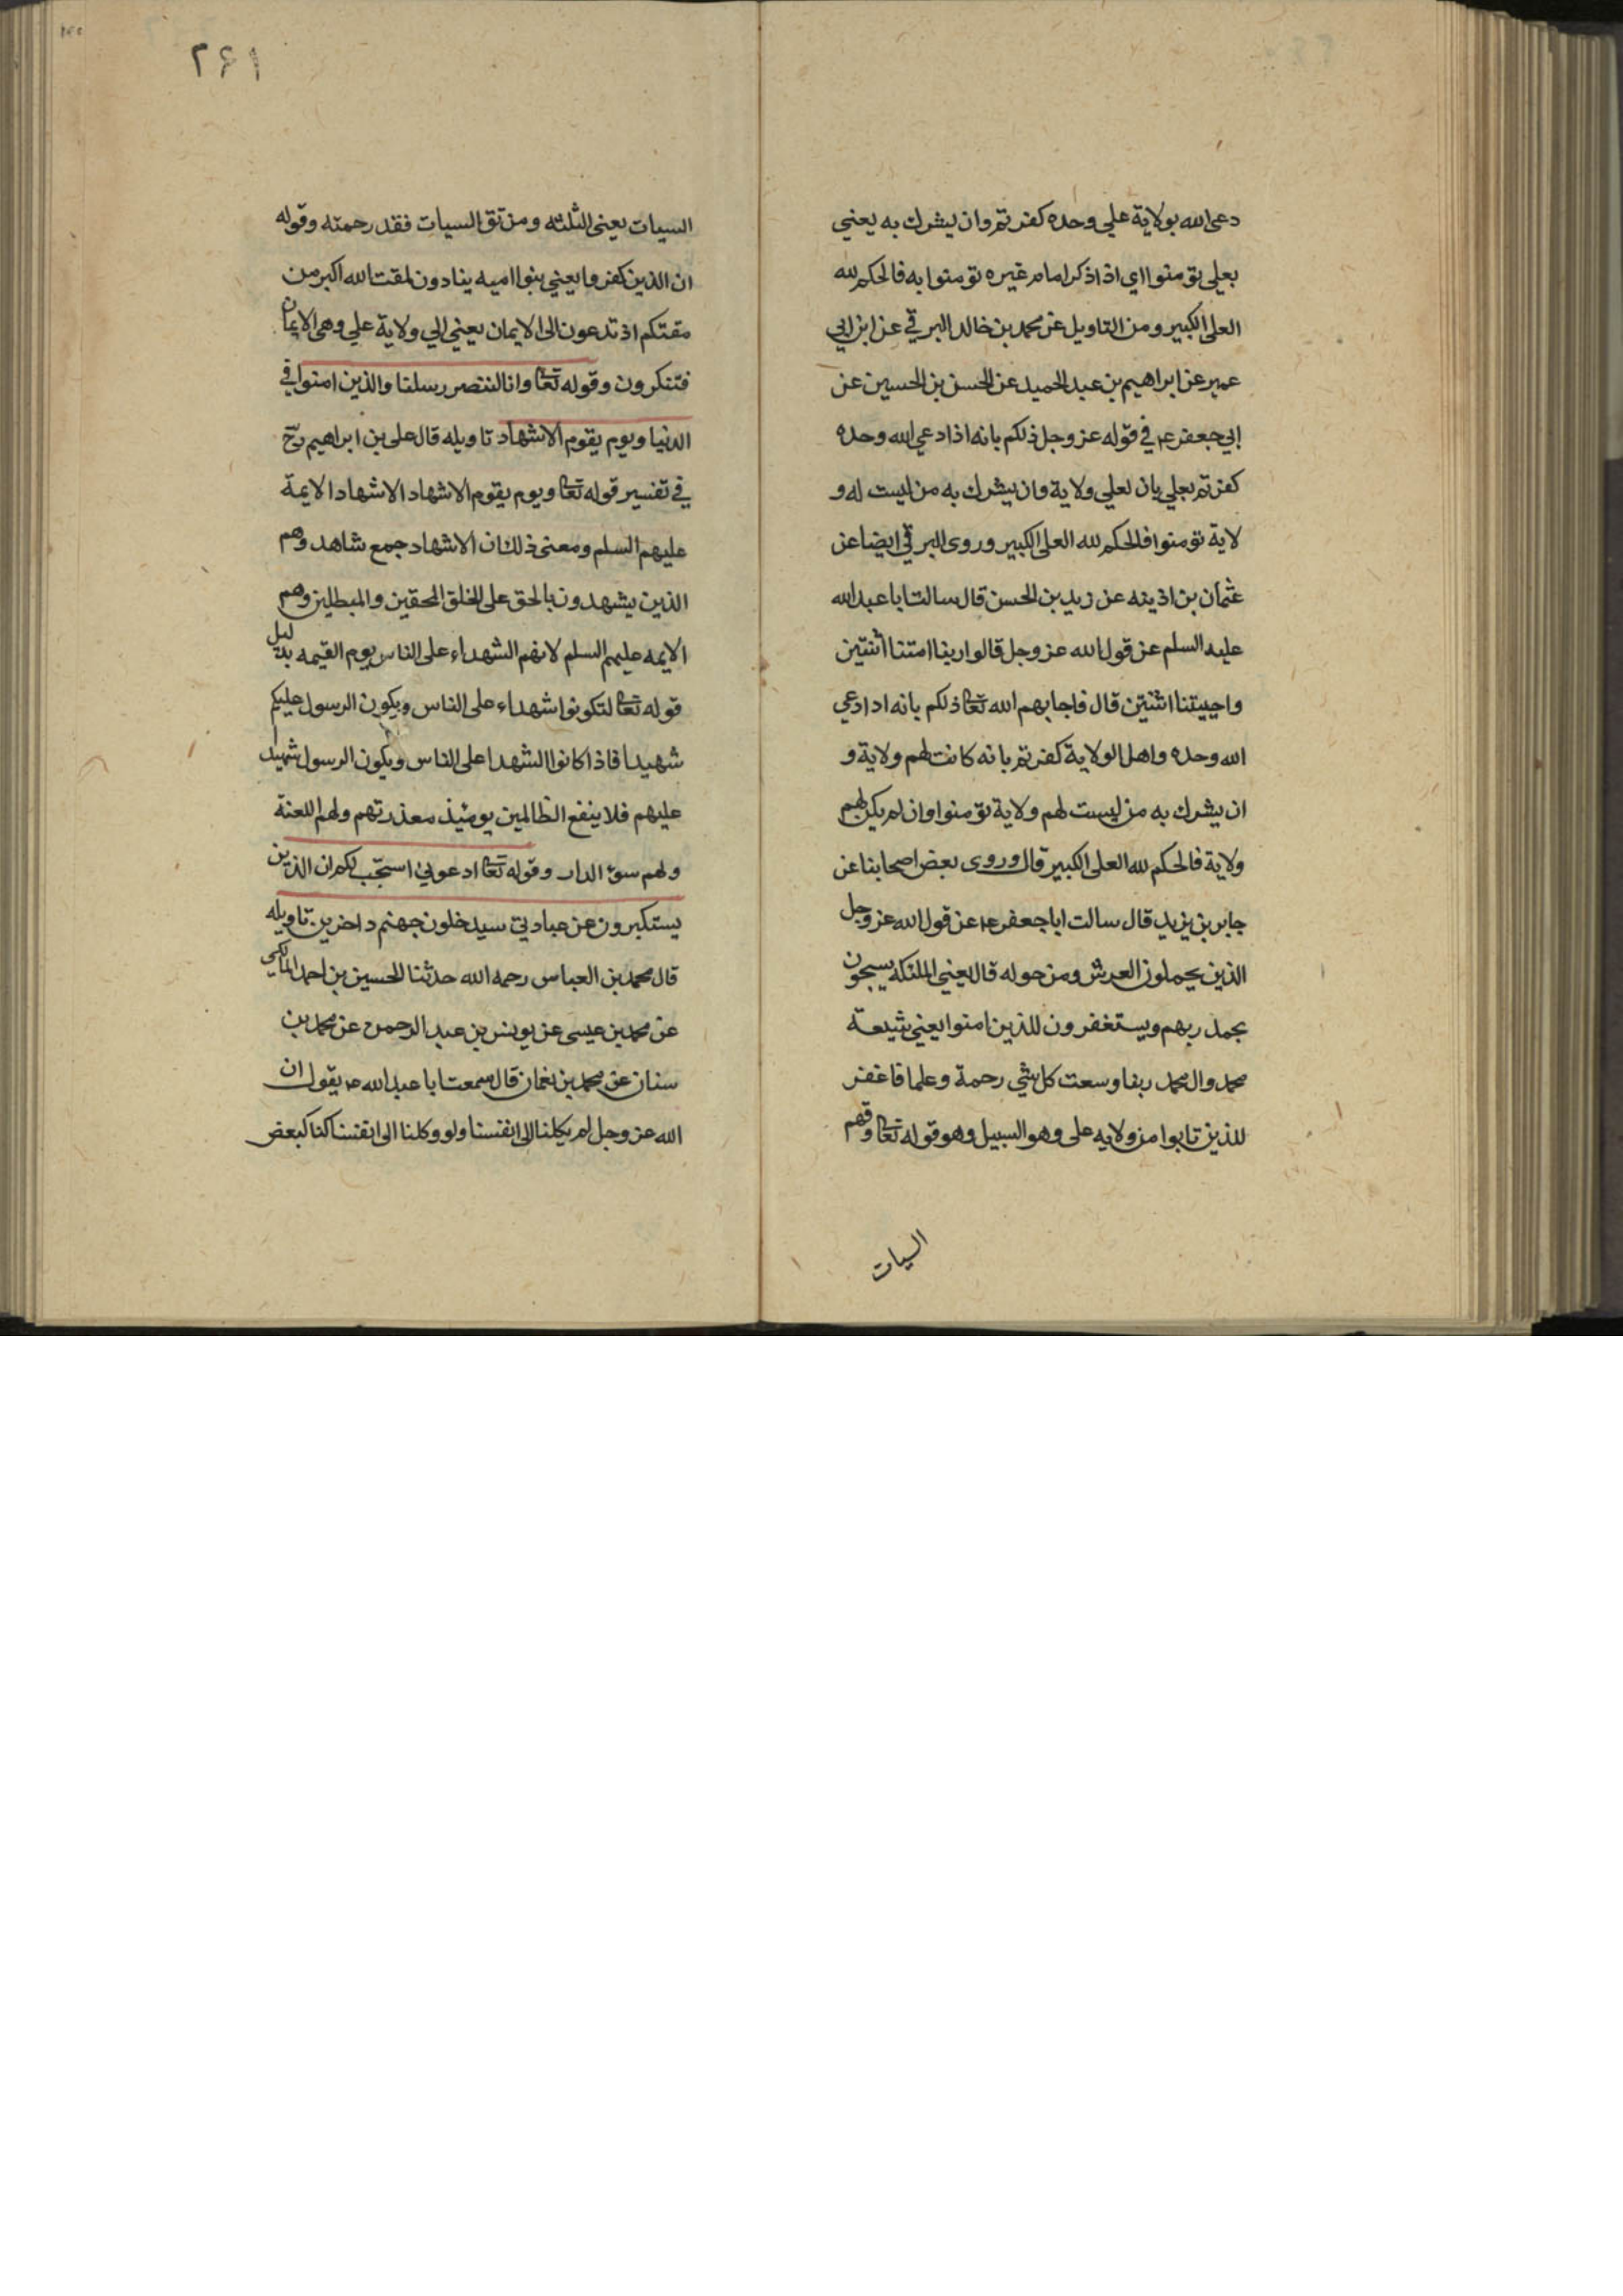 دعى الله بولاية علي وحده كفرتم وان يشرك به يعني
بعلي تومنوا اي اذا ذكر امام غيره تومنوا به فالحكم لله
العلي الكبير ومن التاويل عن محمد بن خالد البرقي عن ابن ابي
عمير عن ابراهيم بن عبد الحميد عن الحسن بن الحسين عن
ابي جعفر ع في قوله عز وجل ذلكم بانه اذا دعي الله وحده
كفرتم بعلي بان لعلي ولاية وان يشرك به من ليست له و
لاية تومنوا فالحكم لله العلي الكبير وروى البرقي ايضا عن
عثمان بن اذينه عن زيد بن الحسن قال سالت ابا عبد الله
عليه السلم عن قول الله عز وجل قالوا ربنا امتنا اثنتين
واحييتنا اثنتين قال فاجابهم الله تعا ذلكم بانه اذا دعي
الله وحده واهل الولاية كفرتم بانه كانت لهم ولاية و
ان يشرك به من ليست لهم ولاية تومنوا وان لم يكن لهم
ولاية فالحكم لله العلي الكبير قال وروى بعض اصحابنا عن
جابر بن يزيد قال سالت ابا جعفر ع عن قول الله عز وجل
الذين يحملون العرش ومن حوله قال يعني الملئكة يسبحون
بحمد ربهم ويستغفرون للذين امنوا يعني شيعة
محمد وال محمد ربنا وسعت كل شي رحمة وعلما فاغفر
للذين تابوا من ولايه على وهو السبيل وهو قوله تعا وقهم
السيات
٢٤١
السيات يعنى الثلثه ومن تق السيات فقد رحمته وقوله
ان الذين كفروا يعني بنوا اميه ينادون لمقت الله اكبر من
مقتكم اذ تدعون الى الايمان يعني الي ولاية علي وهى الايمان
فتنكرون وقوله تعا وانا لننصر رسلنا والذين امنوا في
الدنيا ويوم يقوم الاشهاد تاويله قال على بن ابراهيم رح
في تفسير قوله تعا ويوم يقوم الاشهاد الاشهاد الايمة
عليهم السلم ومعنى ذلك ان الاشهاد جمع شاهد وهم
الذين يشهدون بالحق على الخلق المحقين والمبطلين وهم
الايمه عليهم السلم لانهم الشهداء على الناس يوم القيمه بدليل
قوله تعا لتكونوا شهداء على الناس ويكون الرسول عليكم
شهيدا فاذا كانوا الشهدا على الناس ويكون الرسول شهيدا
عليهم فلا ينفع الظالمين يومئذ معذرتهم ولهم اللعنة
ولهم سوء الدار وقوله تعا ادعوني استجب لكم ان الذين
يستكبرون عن عبادتي سيدخلون جهنم داخرين تاويله
قال محمد بن العباس رحمه الله حدثنا الحسين بن احمد المالكي
عن محمد بن عيسى عن يونس بن عبد الرحمن عن محمد بن
سنان عن محمد بن نعمان قال سمعت ابا عبد الله ع يقول ان
الله عز وجل لم يكلنا الى انفسنا ولو وكلنا الى انفسنا كنا كبعض